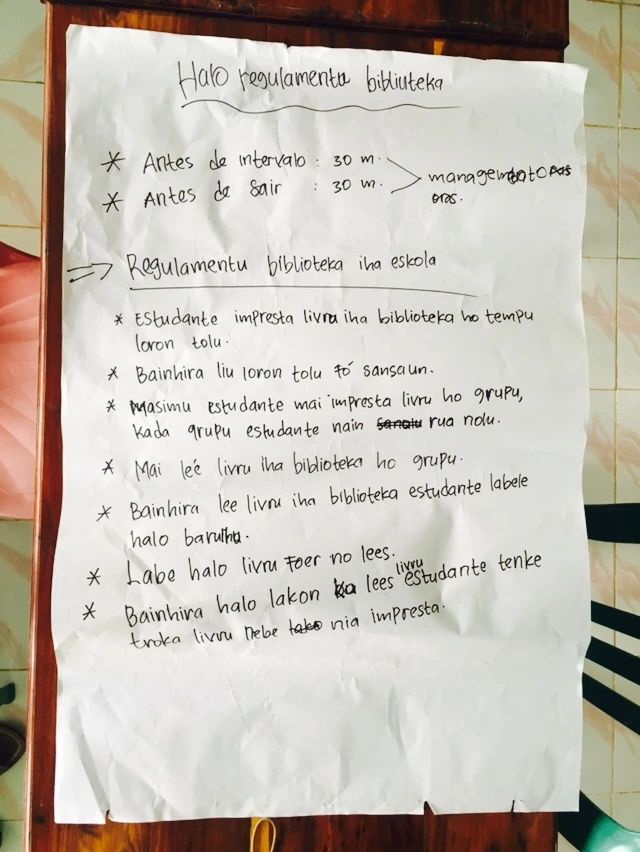 Halo regulamentu bibliuteka
* Antes de intervalo : 30 m.
* Antes de Sair : 30 m.
managementO
oras.
=> Regulamentu biblioteka iha eskola
* Estudante impresta livru iha biblioteka ho tempu
loron tolu.
* Bainhira liu loron tolu fó sansaun.
* Masimu estudante mai impresta livru ho grupu,
kada grupu estudante nain sanulu rua nolu.
* Mai leé livru iha biblioteka ho grupu.
* Bainhira lee livru iha biblioteka estudante labele
halo barulhu.
* Labe halo livru foer no lees.
* Bainhira halo lakon ka lees livru estudante tenke
troka livru nebe nia impresta.